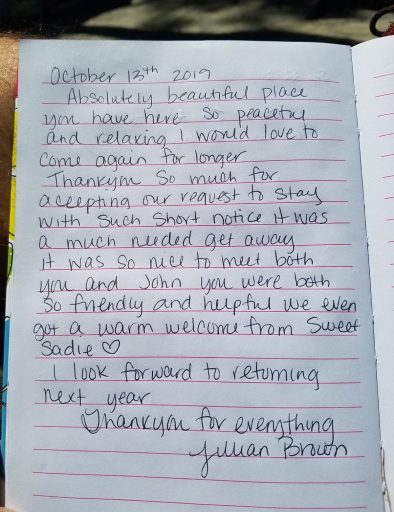 October 13th 2019
Absolutely beautiful place
you have here so peaceful
and relaxing I would love to
come again for longer
Thankyou so much for
accepting our request to stay
with such short notice it was
a much needed get away
it was so nice to meet both
you and John you were both
so friendly and helpful we even
got a warm welcome from Sweet
Sadie ♡
I look forward to returning
next year
Thankyou for everything
Jillian Brown